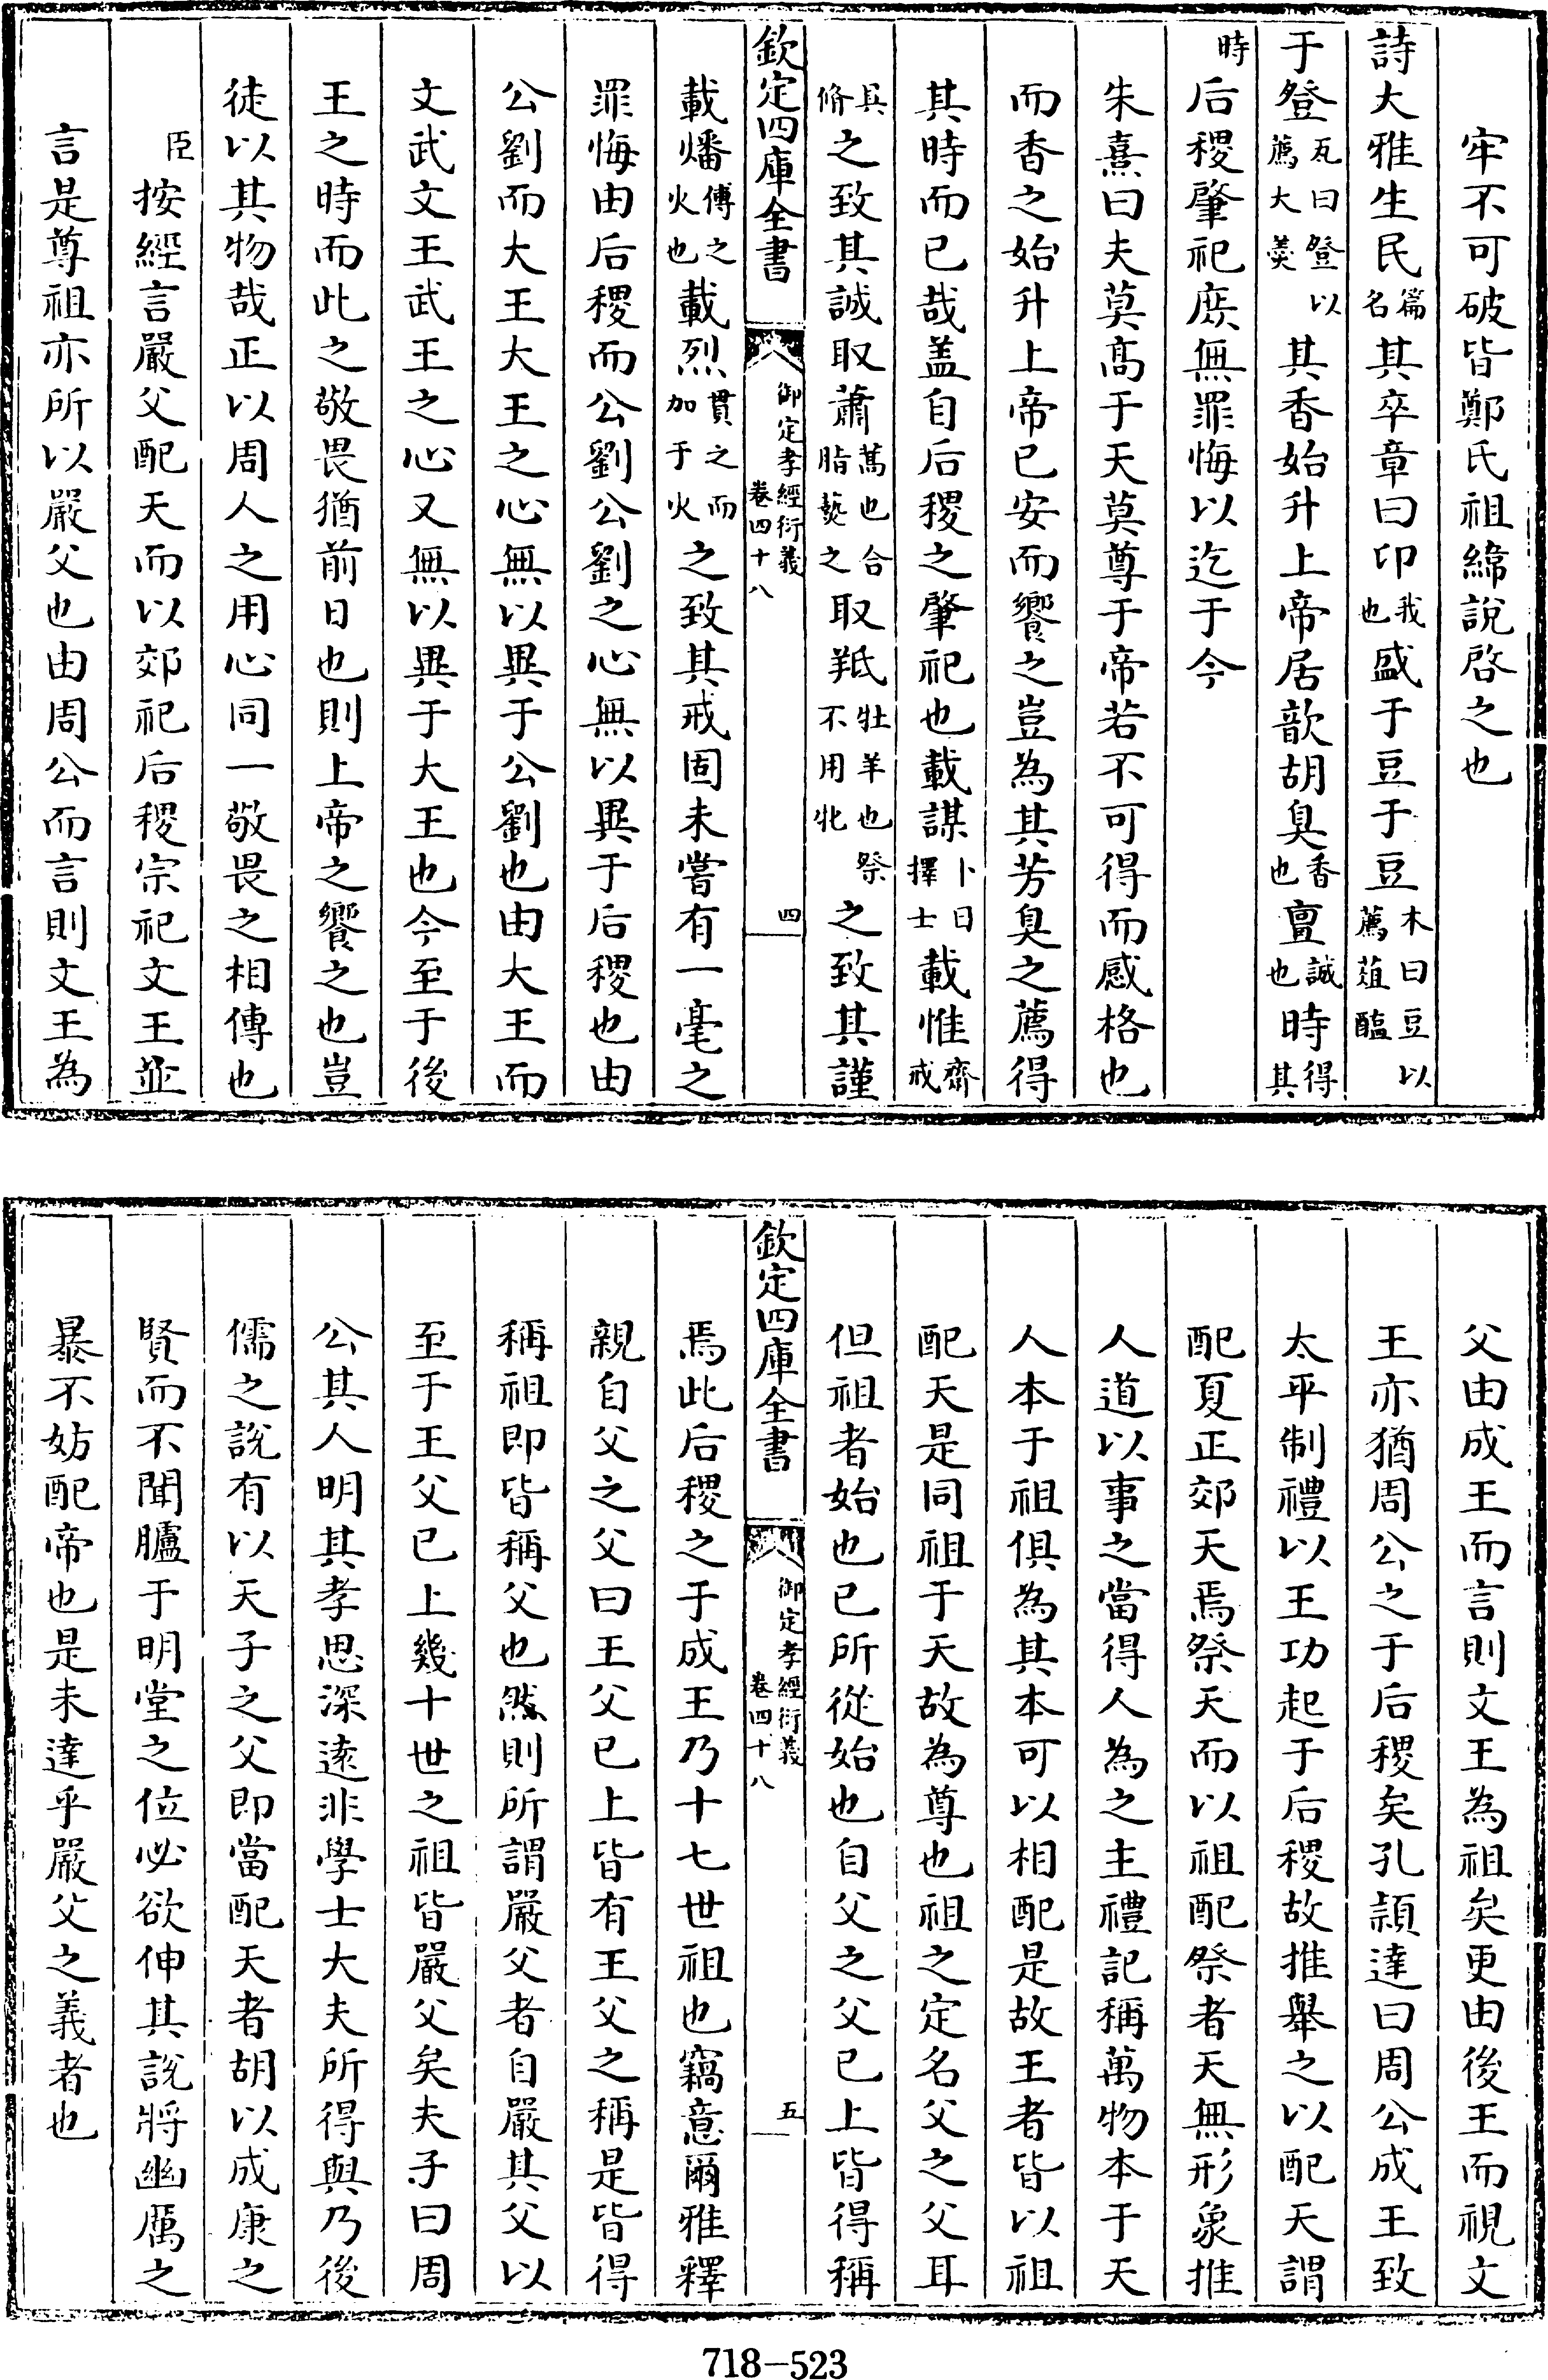 牢不可破皆鄭氏祖緯說啓之也
詩大雅生民篇名其卒章曰卬我也盛于豆于豆木曰豆以薦菹醢
于登瓦曰登以薦大羮其香始升上帝居歆胡臭香也亶誠也時得其
時后稷肇祀庶無罪悔以迄于今
朱熹曰夫莫髙于天莫尊于帝若不可得而感格也
而香之始升上帝已安而饗之豈為其芳臭之薦得
其時而已哉盖自后稷之肇祀也載謀卜日擇士載惟齋戒
具脩之致其誠取蕭蒿也合脂爇之取羝牡羊也祭不用牝之致其謹
欽定四庫全書 御定孝經衍義 卷四十八 四
載燔傅之火也載烈貫之而加于火之致其戒固未嘗有一毫之
罪悔由后稷而公劉公劉之心無以異于后稷也由
公劉而大王大王之心無以異于公劉也由大王而
文武文王武王之心又無以異于大王也今至于後
王之時而此之敬畏猶前日也則上帝之饗之也豈
徒以其物哉正以周人之用心同一敬畏之相傳也
臣按經言嚴父配天而以郊祀后稷宗祀文王並
言是尊祖亦所以嚴父也由周公而言則文王為
父由成王而言則文王為祖矣更由後王而視文
王亦猶周公之于后稷矣孔頴達曰周公成王致
太平制禮以王功起于后稷故推舉之以配天謂
配夏正郊天焉祭天而以祖配祭者天無形象推
人道以事之當得人為之主禮記稱萬物本于天
人本于祖俱為其本可以相配是故王者皆以祖
配天是同祖于天故為尊也祖之定名父之父耳
但祖者始也已所從始也自父之父已上皆得稱
欽定四庫全書 御定孝經衍義 卷四十八 五
焉此后稷之于成王乃十七世祖也竊意爾雅釋
親自父之父曰王父已上皆有王父之稱是皆得
稱祖即皆稱父也然則所謂嚴父者自嚴其父以
至于王父已上幾十世之祖皆嚴父矣夫子曰周
公其人明其孝思深逺非學士大夫所得與乃後
儒之說有以天子之父即當配天者胡以成康之
賢而不聞臚于明堂之位必欲伸其說將幽厲之
暴不妨配帝也是未達乎嚴父之義者也
718-523